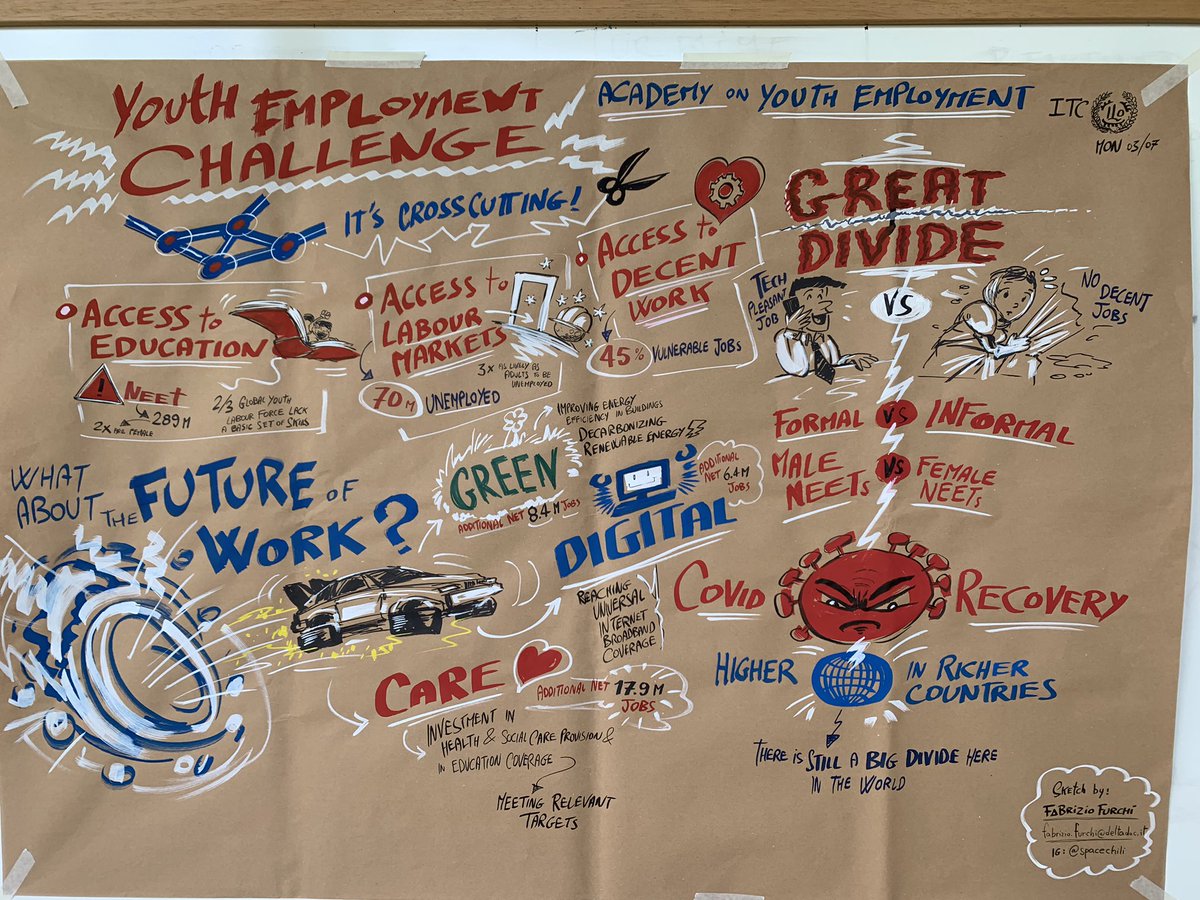 YOUTH EMPLOYMENT
CHALLENGE
ACADEMY ON YOUTH EMPLOYMENT
ITC ILO
MON 03/07
IT'S CROSSCUTTING!
ACCESS TO
EDUCATION
NEET
289M
2X ARE FEMALE
2/3 GLOBAL YOUTH
LABOUR FORCE LACK
A BASIC SET OF SKILLS
ACCESS TO
LABOUR
MARKETS
3X AS LIKELY AS
ADULTS TO BE
UNEMPLOYED
70M UNEMPLOYED
ACCESS TO
DECENT
WORK
45% VULNERABLE JOBS
GREAT
DIVIDE
TECH
PLEASANT
JOB
VS
NO DECENT
JOBS
FORMAL VS INFORMAL
MALE
NEETS
VS
FEMALE
NEETS
COVID RECOVERY
HIGHER
IN RICHER
COUNTRIES
THERE IS STILL A BIG DIVIDE HERE
IN THE WORLD
WHAT
ABOUT THE FUTURE OF
WORK?
GREEN
IMPROVING ENERGY
EFFICIENCY IN BUILDINGS
DECARBONIZING
RENEWABLE ENERGY
ADDITIONAL NET 8.4 M JOBS
DIGITAL
ADDITIONAL
NET 6.4M
JOBS
REACHING
UNIVERSAL
INTERNET
BROADBAND
COVERAGE
CARE
ADDITIONAL NET 17.9 M
JOBS
INVESTMENT IN
HEALTH & SOCIAL CARE PROVISION &
IN EDUCATION COVERAGE
MEETING RELEVANT
TARGETS
SKETCH BY:
FABRIZIO FURCHÌ
fabrizio.furchi@deltadoc.it
IG: @spacechili